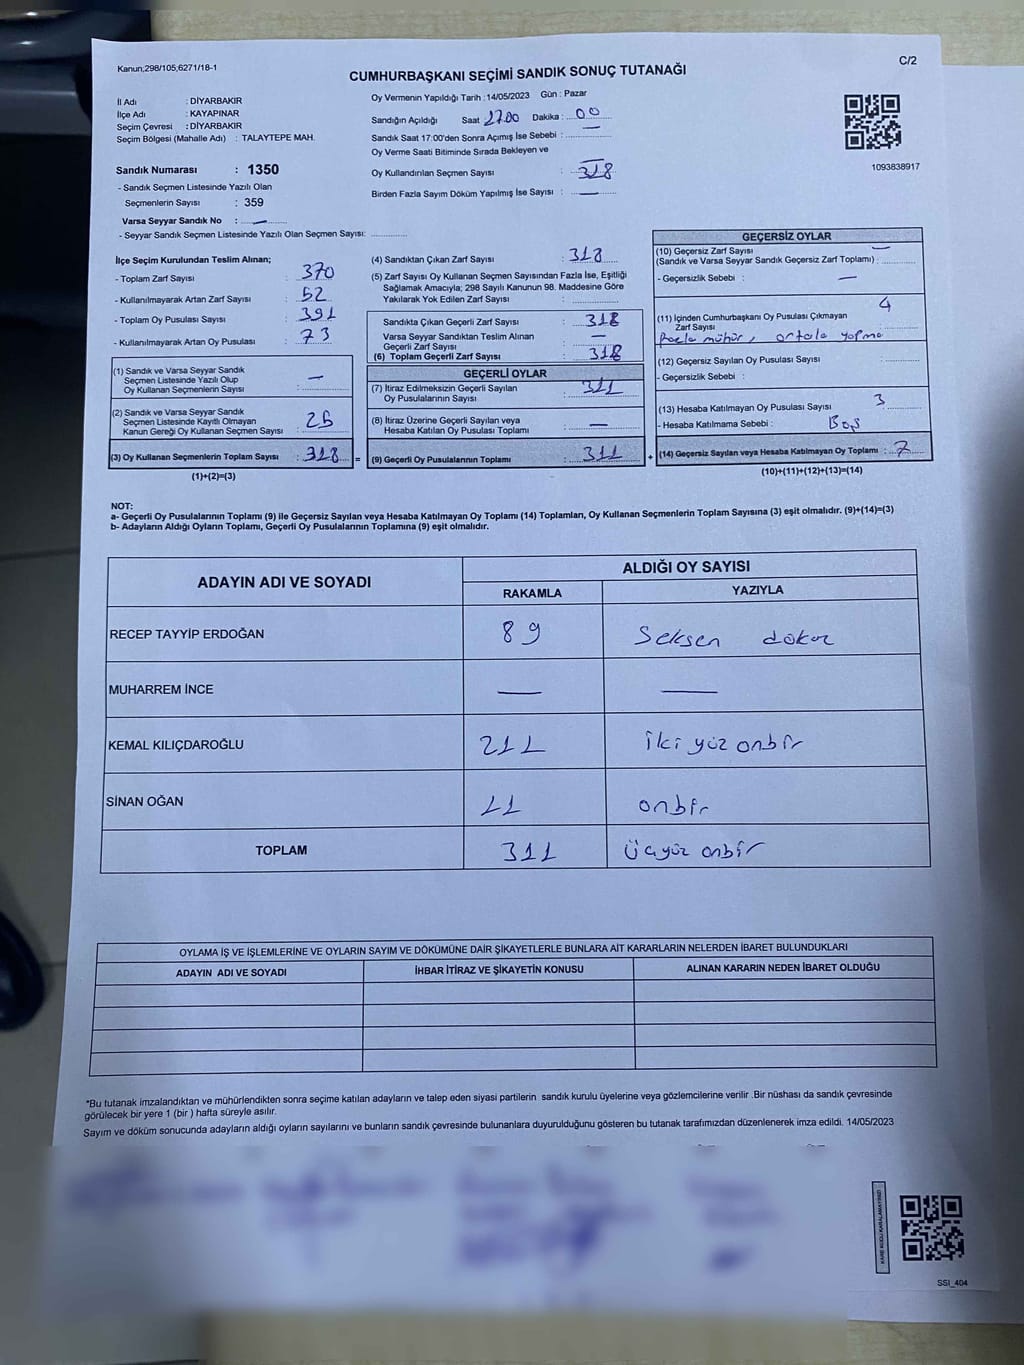 Kanun;298/105,6271/18-1
C/2
CUMHURBAŞKANI SEÇİMİ SANDIK SONUÇ TUTANAĞI
İl Adı : DİYARBAKIR
İlçe Adı : KAYAPINAR
Seçim Çevresi : DİYARBAKIR
Seçim Bölgesi (Mahalle Adı) : TALAYTEPE MAH.
Sandık Numarası : 1350
- Sandık Seçmen Listesinde Yazılı Olan
Seçmenlerin Sayısı : 359
Varsa Seyyar Sandık No : —
- Seyyar Sandık Seçmen Listesinde Yazılı Olan Seçmen Sayısı:
Oy Vermenin Yapıldığı Tarih :14/05/2023 Gün : Pazar
Sandığın Açıldığı Saat 17.00 Dakika : 00
Sandık Saat 17:00'den Sonra Açımış İse Sebebi : —
Oy Verme Saati Bitiminde Sırada Bekleyen ve
Oy Kullandırılan Seçmen Sayısı : 318
Birden Fazla Sayım Döküm Yapılmış İse Sayısı : —
1093838917
İlçe Seçim Kurulundan Teslim Alınan;
- Toplam Zarf Sayısı : 370
- Kullanılmayarak Artan Zarf Sayısı : 52
- Toplam Oy Pusulası Sayısı : 391
- Kullanılmayarak Artan Oy Pusulası : 73
(1) Sandık ve Varsa Seyyar Sandık
Seçmen Listesinde Yazılı Olup
Oy Kullanan Seçmenlerin Sayısı : —
(2) Sandık ve Varsa Seyyar Sandık
Seçmen Listesinde Kayıtlı Olmayan
Kanun Gereği Oy Kullanan Seçmen Sayısı :
(3) Oy Kullanan Seçmenlerin Toplam Sayısı : 318 =
(1)+(2)=(3)
(4) Sandıktan Çıkan Zarf Sayısı : 318
(5) Zarf Sayısı Oy Kullanan Seçmen Sayısından Fazla İse, Eşitliği
Sağlamak Amacıyla; 298 Sayılı Kanunun 98. Maddesine Göre
Yakılarak Yok Edilen Zarf Sayısı :
Sandıkta Çıkan Geçerli Zarf Sayısı : 318
Varsa Seyyar Sandıktan Teslim Alınan
Geçerli Zarf Sayısı : —
(6) Toplam Geçerli Zarf Sayısı : 318
GEÇERLİ OYLAR
(7) İtiraz Edilmeksizin Geçerli Sayılan
Oy Pusulalarının Sayısı : 311
(8) İtiraz Üzerine Geçerli Sayılan veya
Hesaba Katılan Oy Pusulası Toplamı : —
(9) Geçerli Oy Pusulalarının Toplamı : 311 +
GEÇERSİZ OYLAR
(10) Geçersiz Zarf Sayısı —
(Sandık ve Varsa Seyyar Sandık Geçersiz Zarf Toplamı) :
- Geçersizlik Sebebi : —
4
(11) İçinden Cumhurbaşkanı Oy Pusulası Çıkmayan
Zarf Sayısı :
mühür, ortala
(12) Geçersiz Sayılan Oy Pusulası Sayısı :
- Geçersizlik Sebebi :
(13) Hesaba Katılmayan Oy Pusulası Sayısı : 3
- Hesaba Katılmama Sebebi : Boş
(14) Geçersiz Sayılan veya Hesaba Katılmayan Oy Toplamı : 7
(10)+(11)+(12)+(13)=(14)
NOT:
a- Geçerli Oy Pusulalarının Toplamı (9) ile Geçersiz Sayılan veya Hesaba Katılmayan Oy Toplamı (14) Toplamları, Oy Kullanan Seçmenlerin Toplam Sayısına (3) eşit olmalıdır. (9)+(14)=(3)
b- Adayların Aldığı Oyların Toplamı, Geçerli Oy Pusulalarının Toplamına (9) eşit olmalıdır.
ADAYIN ADI VE SOYADI
ALDIĞI OY SAYISI
RAKAMLA
YAZIYLA
RECEP TAYYİP ERDOĞAN 89 Seksen dokuz
MUHARREM İNCE — —
KEMAL KILIÇDAROĞLU 211 iki yüz onbir
SİNAN OĞAN 11 onbir
TOPLAM 311 Üçyüz onbir
OYLAMA İŞ VE İŞLEMLERİNE VE OYLARIN SAYIM VE DÖKÜMÜNE DAİR ŞİKAYETLERLE BUNLARA AİT KARARLARIN NELERDEN İBARET BULUNDUKLARI
ADAYIN ADI VE SOYADI
İHBAR İTİRAZ VE ŞİKAYETİN KONUSU
ALINAN KARARIN NEDEN İBARET OLDUĞU
*Bu tutanak imzalandıktan ve mühürlendikten sonra seçime katılan adayların ve talep eden siyasi partilerin sandık kurulu üyelerine veya gözlemcilerine verilir .Bir nüshası da sandık çevresinde
görülecek bir yere 1 (bir ) hafta süreyle asılır.
Sayım ve döküm sonucunda adayların aldığı oyların sayılarını ve bunların sandık çevresinde bulunanlara duyurulduğunu gösteren bu tutanak tarafımızdan düzenlenerek imza edildi. 14/05/2023
KARE KODU KARALAMAYINIZ!
SSI_404